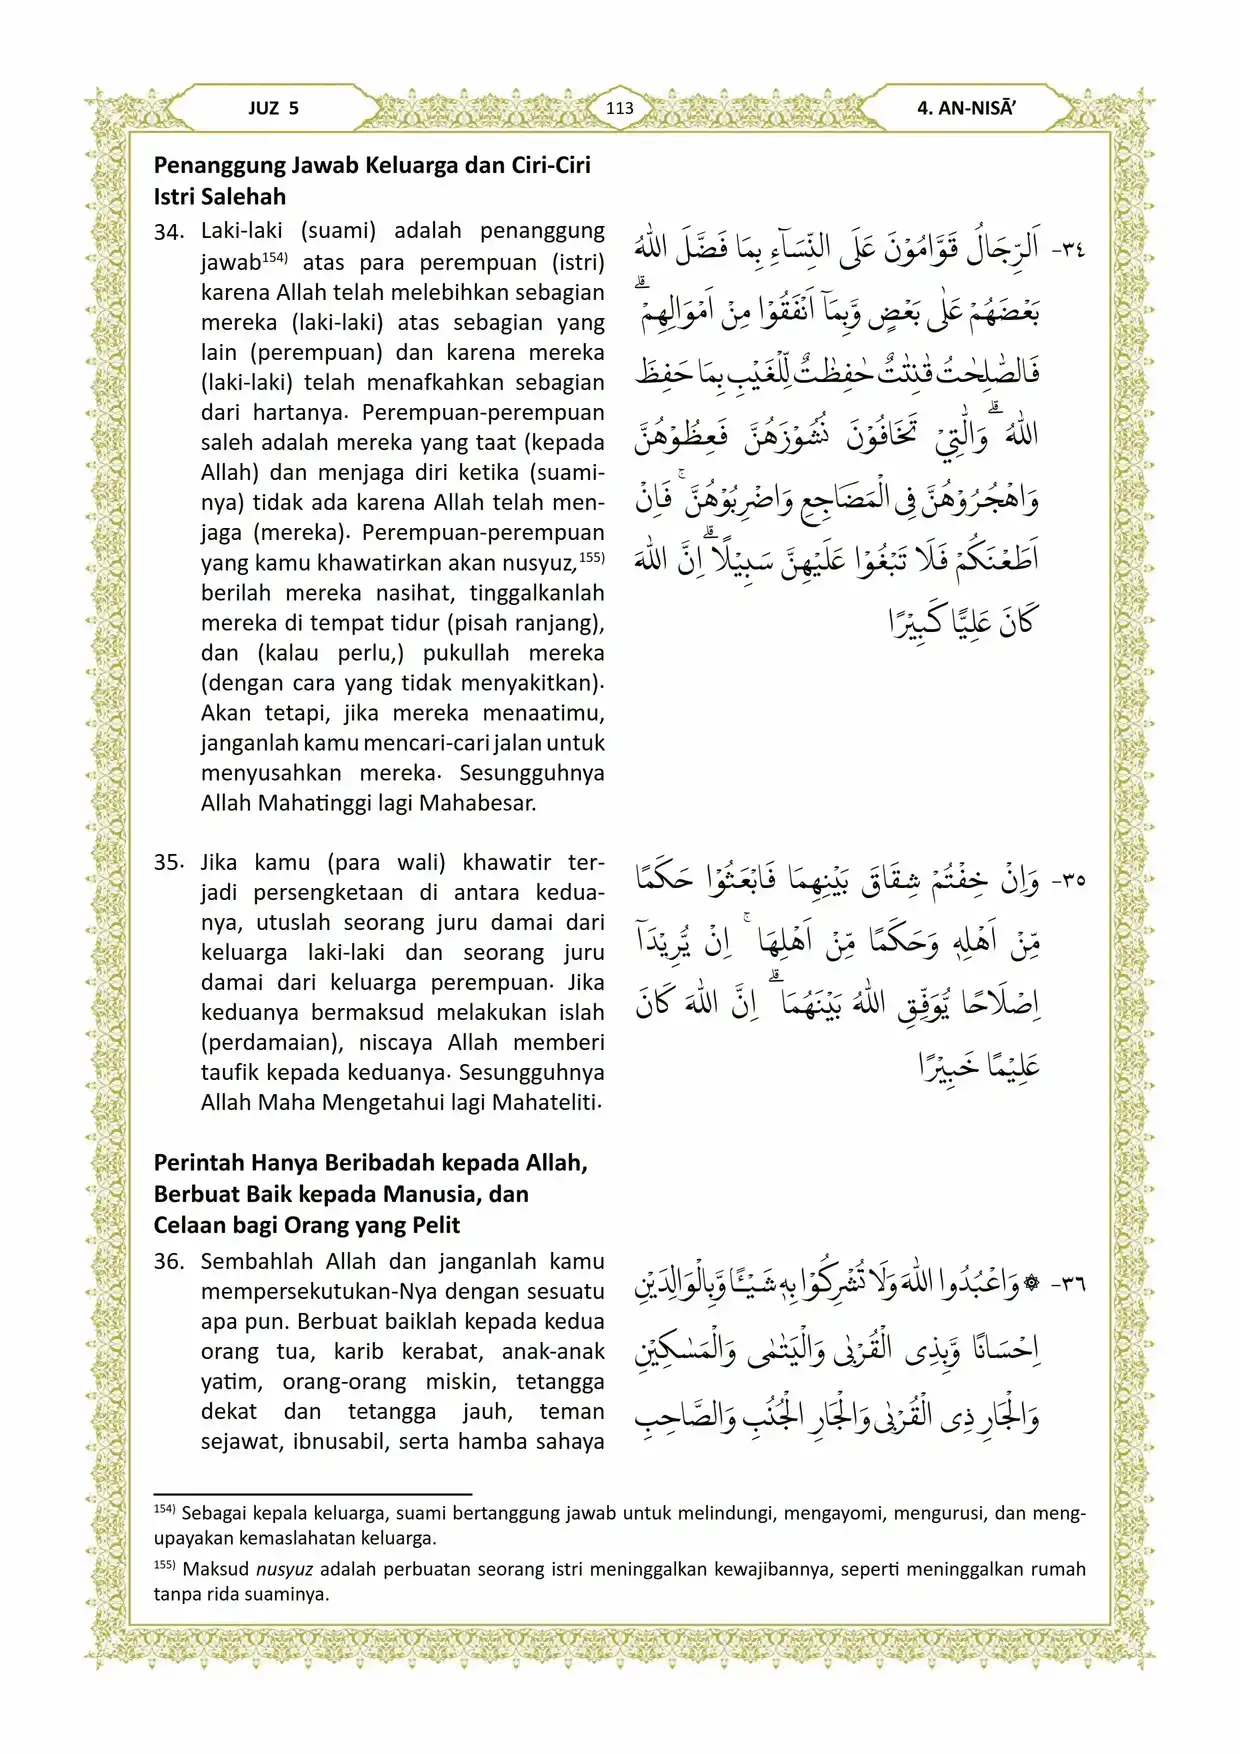 JUZ 5
113
4. AN-NISĀ’
Penanggung Jawab Keluarga dan Ciri-Ciri
Istri Salehah
34. Laki-laki (suami) adalah penanggung
jawab¹⁵⁴⁾ atas para perempuan (istri)
karena Allah telah melebihkan sebagian
mereka (laki-laki) atas sebagian yang
lain (perempuan) dan karena mereka
(laki-laki) telah menafkahkan sebagian
dari hartanya. Perempuan-perempuan
saleh adalah mereka yang taat (kepada
Allah) dan menjaga diri ketika (suami-
nya) tidak ada karena Allah telah men-
jaga (mereka). Perempuan-perempuan
yang kamu khawatirkan akan nusyuz,¹⁵⁵⁾
berilah mereka nasihat, tinggalkanlah
mereka di tempat tidur (pisah ranjang),
dan (kalau perlu,) pukullah mereka
(dengan cara yang tidak menyakitkan).
Akan tetapi, jika mereka menaatimu,
janganlah kamu mencari-cari jalan untuk
menyusahkan mereka. Sesungguhnya
Allah Mahatinggi lagi Mahabesar.
٣٤- اَلرِّجَالُ قَوَّامُوْنَ عَلَى النِّسَاۤءِ بِمَا فَضَّلَ اللّٰهُ
بَعْضَهُمْ عَلٰى بَعْضٍ وَّبِمَآ اَنْفَقُوْا مِنْ اَمْوَالِهِمْ ۗ
فَالصّٰلِحٰتُ قٰنِتٰتٌ حٰفِظٰتٌ لِّلْغَيْبِ بِمَا حَفِظَ
اللّٰهُ ۗ وَالّٰتِيْ تَخَافُوْنَ نُشُوْزَهُنَّ فَعِظُوْهُنَّ
وَاهْجُرُوْهُنَّ فِى الْمَضَاجِعِ وَاضْرِبُوْهُنَّ ۚ فَاِنْ
اَطَعْنَكُمْ فَلَا تَبْغُوْا عَلَيْهِنَّ سَبِيْلًا ۗ اِنَّ اللّٰهَ
كَانَ عَلِيًّا كَبِيْرًا
35. Jika kamu (para wali) khawatir ter-
jadi persengketaan di antara kedua-
nya, utuslah seorang juru damai dari
keluarga laki-laki dan seorang juru
damai dari keluarga perempuan. Jika
keduanya bermaksud melakukan islah
(perdamaian), niscaya Allah memberi
taufik kepada keduanya. Sesungguhnya
Allah Maha Mengetahui lagi Mahateliti.
٣٥- وَاِنْ خِفْتُمْ شِقَاقَ بَيْنِهِمَا فَابْعَثُوْا حَكَمًا
مِّنْ اَهْلِهٖ وَحَكَمًا مِّنْ اَهْلِهَا ۚ اِنْ يُّرِيْدَآ
اِصْلَاحًا يُّوَفِّقِ اللّٰهُ بَيْنَهُمَا ۗ اِنَّ اللّٰهَ كَانَ
عَلِيْمًا خَبِيْرًا
Perintah Hanya Beribadah kepada Allah,
Berbuat Baik kepada Manusia, dan
Celaan bagi Orang yang Pelit
36. Sembahlah Allah dan janganlah kamu
mempersekutukan-Nya dengan sesuatu
apa pun. Berbuat baiklah kepada kedua
orang tua, karib kerabat, anak-anak
yatim, orang-orang miskin, tetangga
dekat dan tetangga jauh, teman
sejawat, ibnusabil, serta hamba sahaya
٣٦- ۞ وَاعْبُدُوا اللّٰهَ وَلَا تُشْرِكُوْا بِهٖ شَيْـًٔا وَّبِالْوَالِدَيْنِ
اِحْسَانًا وَّبِذِى الْقُرْبٰى وَالْيَتٰمٰى وَالْمَسٰكِيْنِ
وَالْجَارِ ذِى الْقُرْبٰى وَالْجَارِ الْجُنُبِ وَالصَّاحِبِ
¹⁵⁴⁾ Sebagai kepala keluarga, suami bertanggung jawab untuk melindungi, mengayomi, mengurusi, dan meng-
upayakan kemaslahatan keluarga.
¹⁵⁵⁾ Maksud nusyuz adalah perbuatan seorang istri meninggalkan kewajibannya, seperti meninggalkan rumah
tanpa rida suaminya.